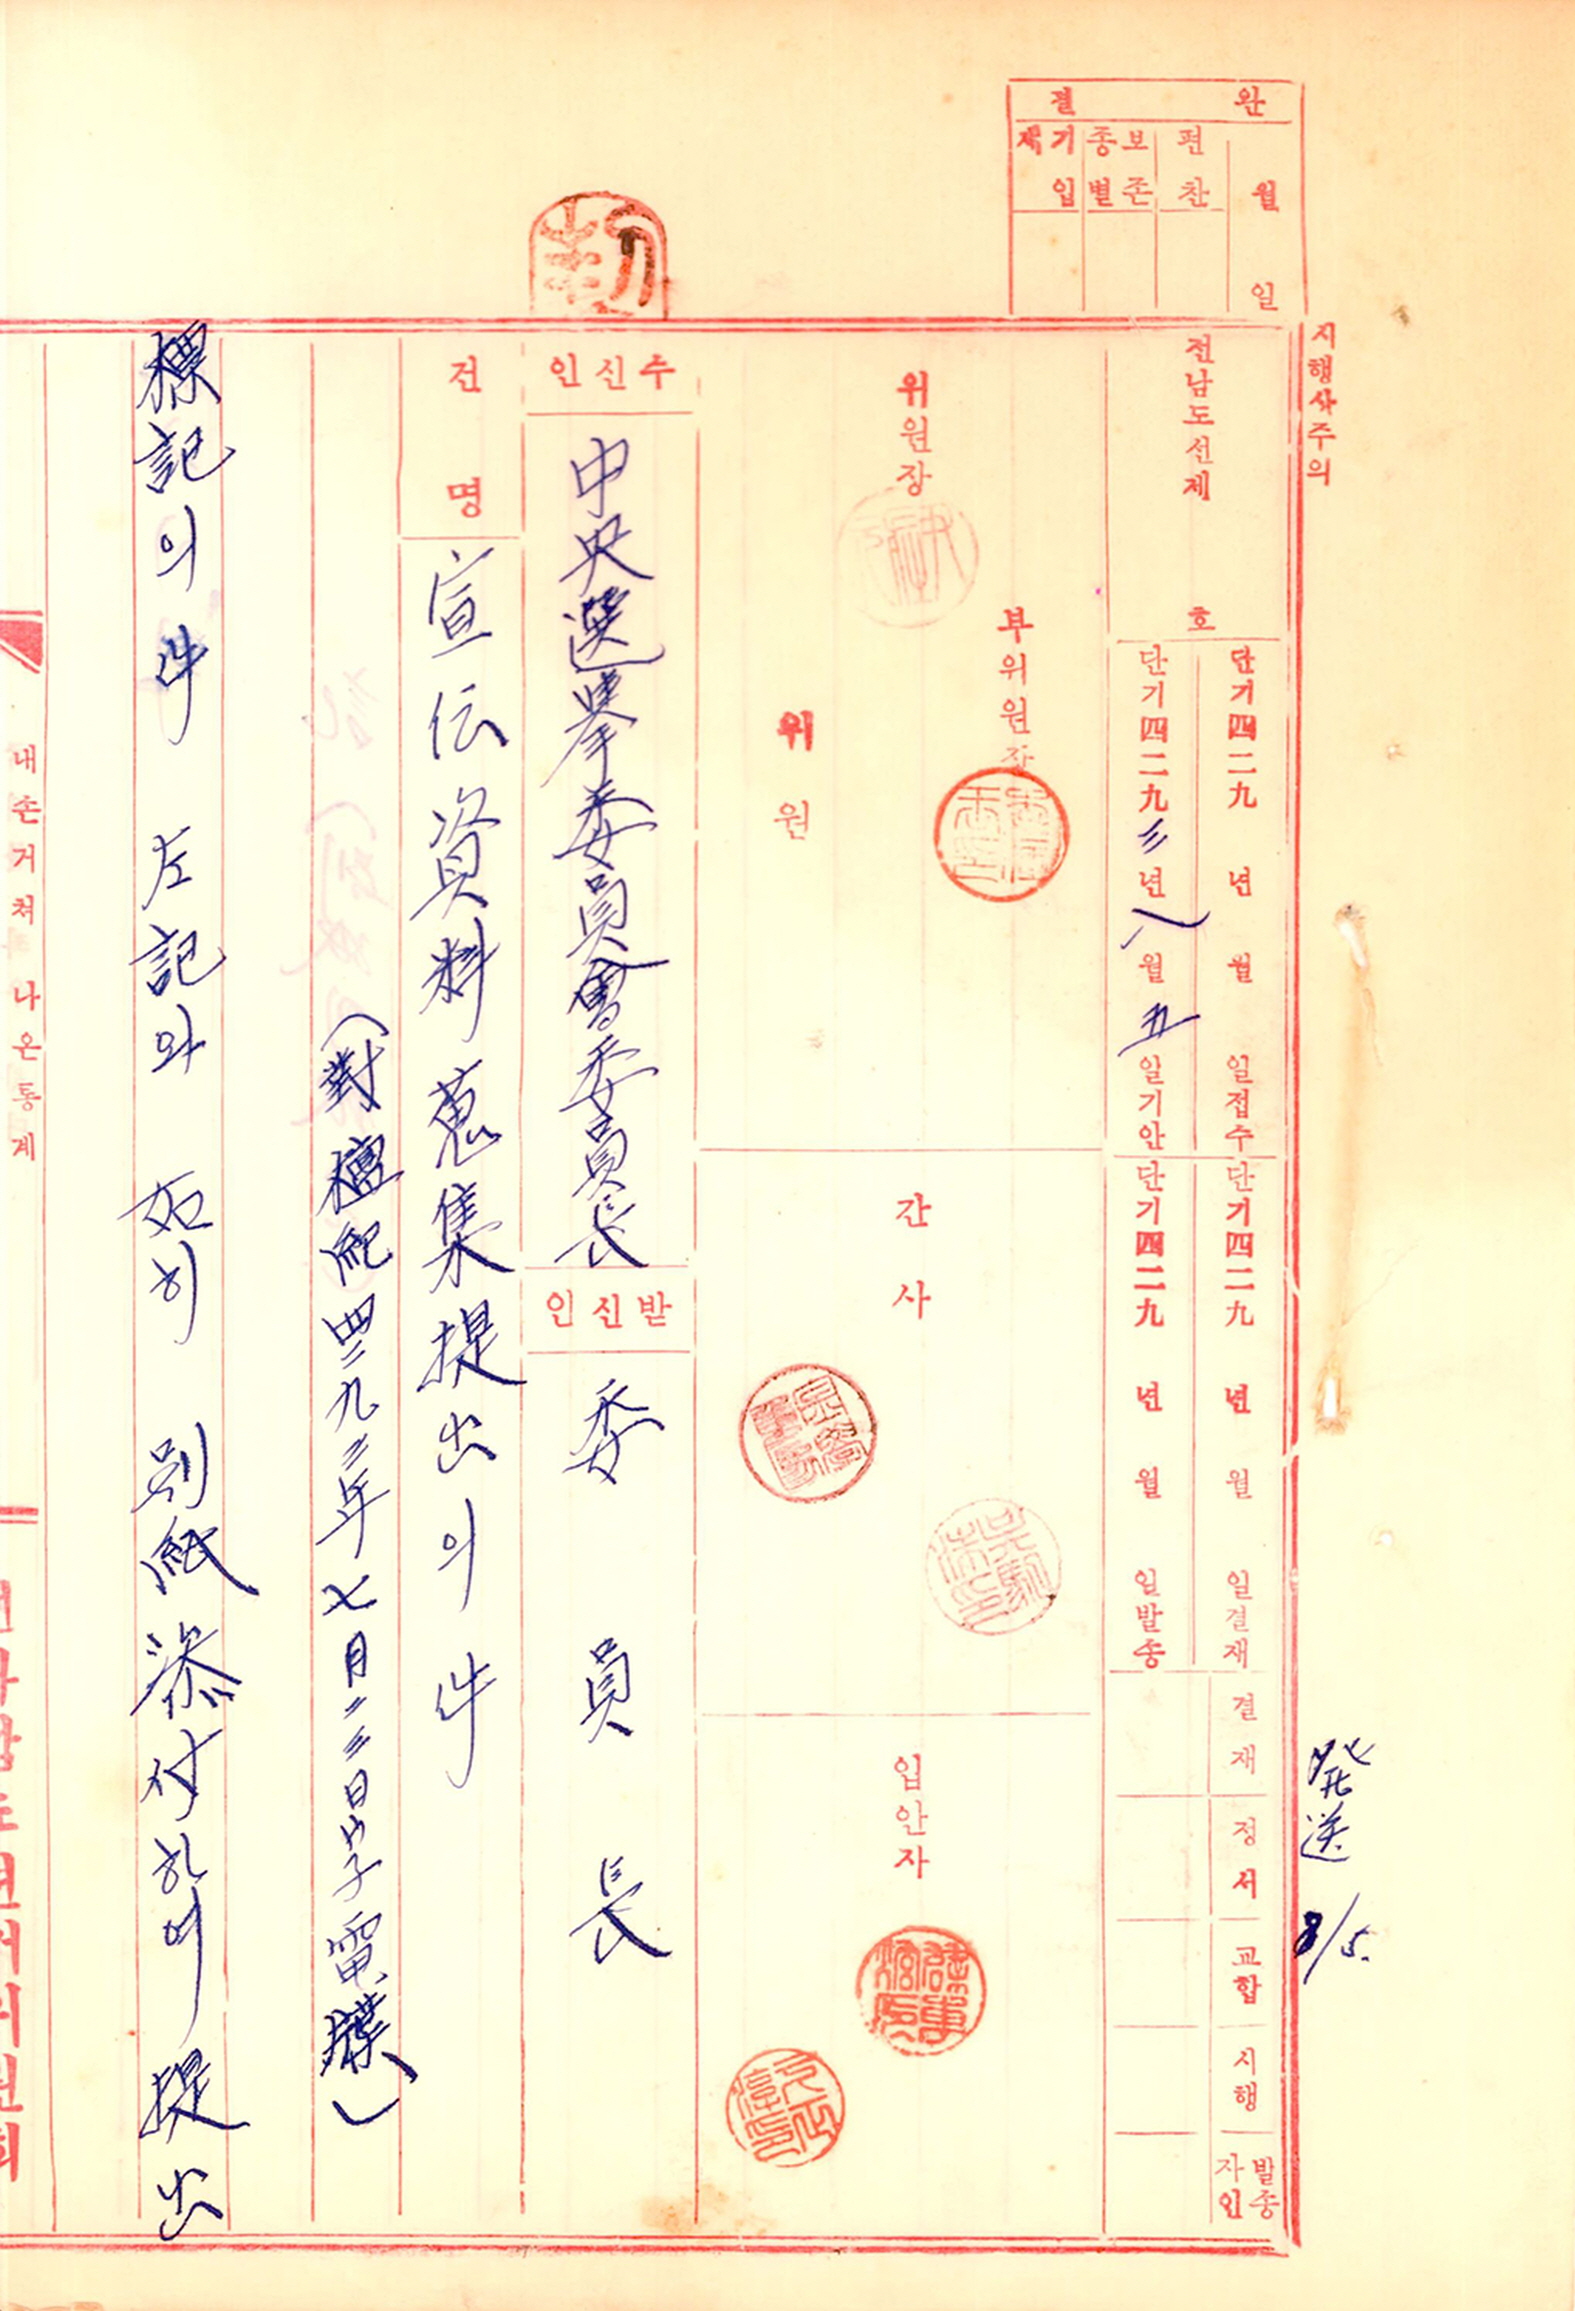 완 결
월 일
편찬
보존
종별
기입
시행사주의
전남도선제 호
단기四二九 년 월 일접수
단기四二九三년八월五일기안
단기四二九 년 월 일결재
단기四二九 년 월 일발송
결재
정서
교합
시행
발송
자인
發送 8/5.
부위원장
위원장
위원
간사
입안자
수신인
中央選擧委員會委員長
받신인
委員長
건명
宣伝資料蒐集提出의件
(對檀紀四二九三年七月二三日字電牒)
標記의件 左記와 如히 別紙 添付하여 提出
내손거쳐 나온통계